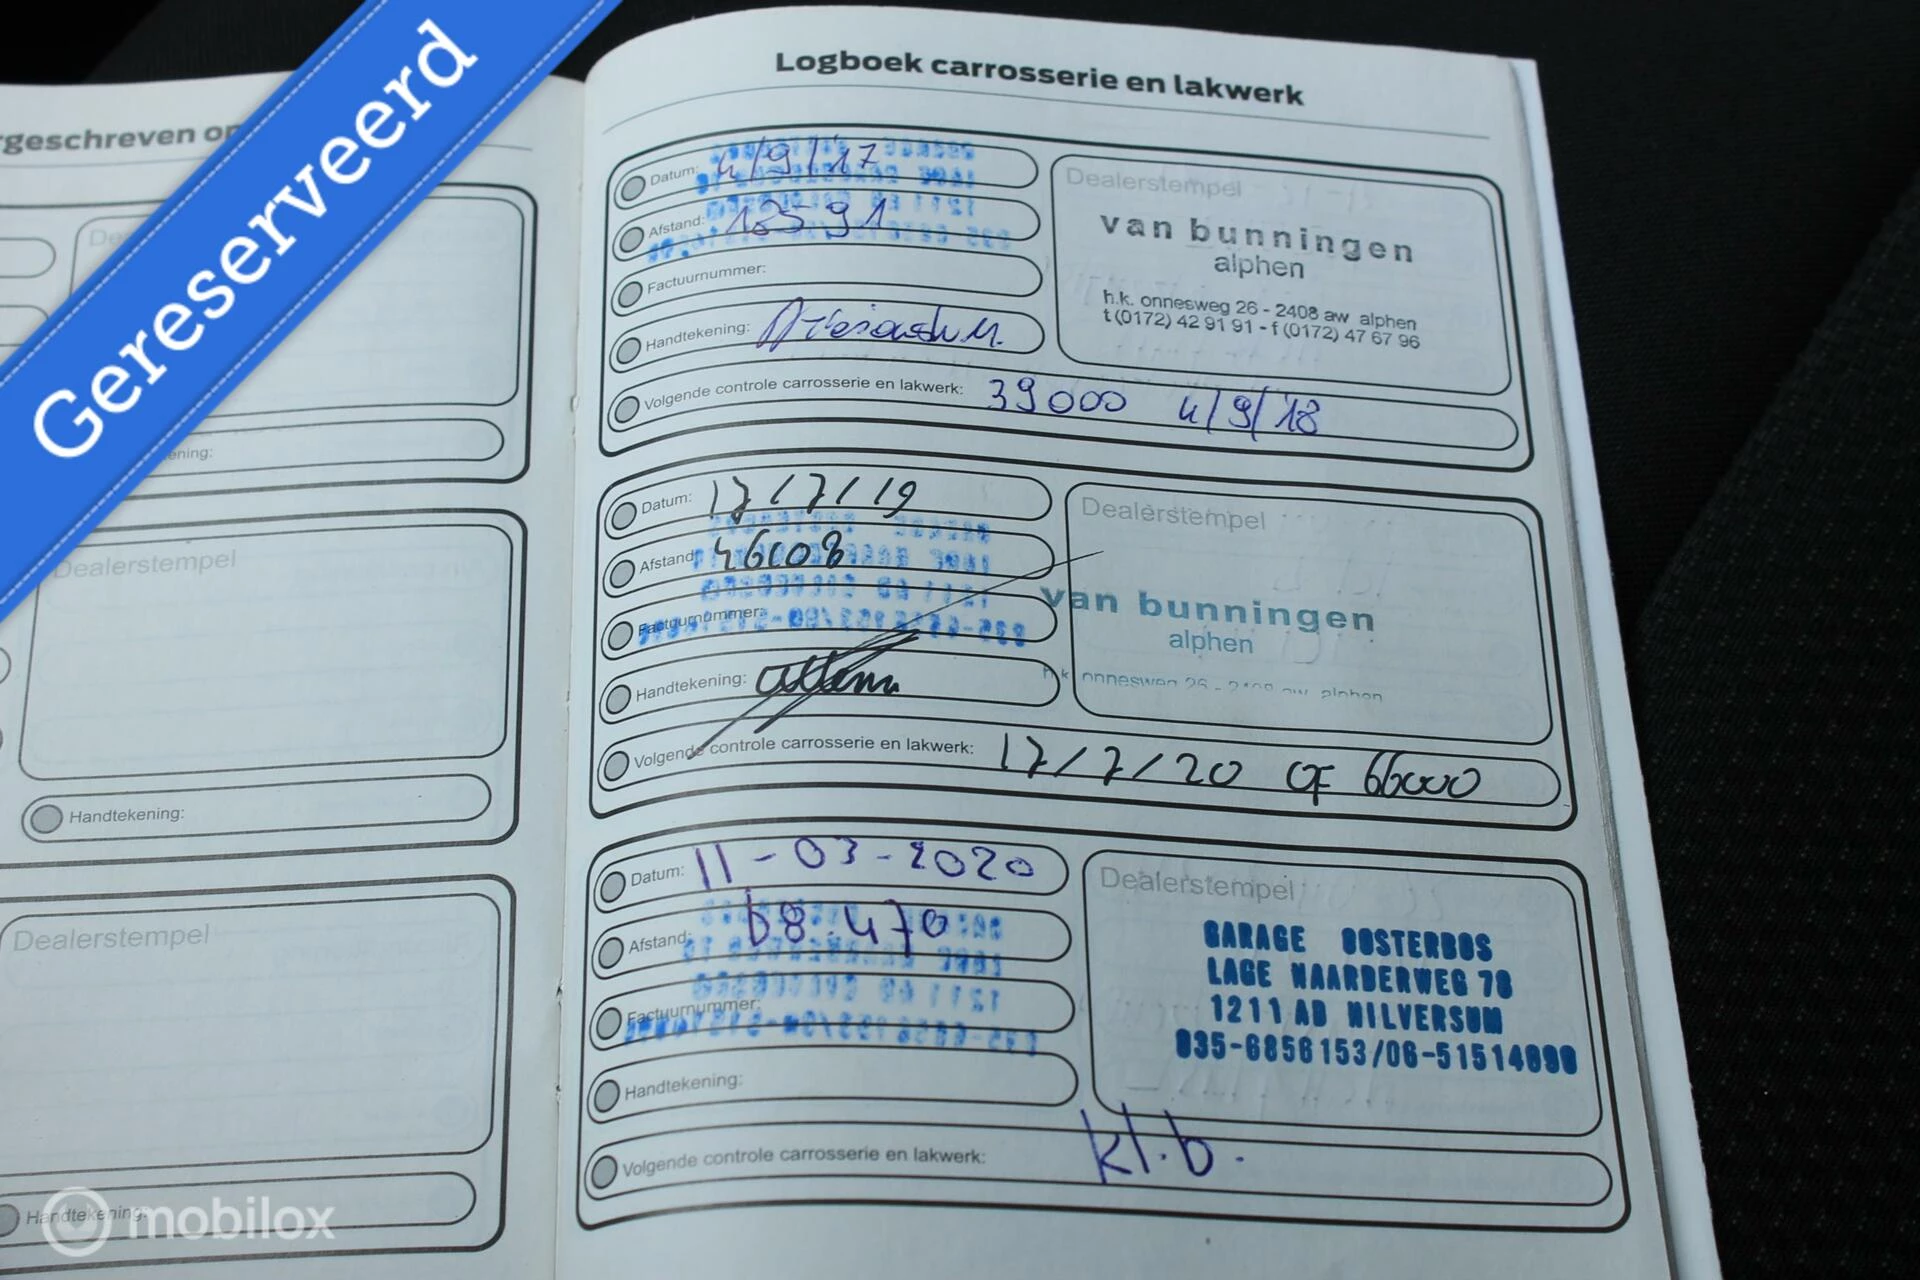 Gereserveerd
rgeschreven on
Dealerstempel
Handtekening:
Dealerstempel
Handtekening:
mobilox
Logboek carrosserie en lakwerk
Datum: 4/9/17
Afstand:
Factuurnummer:
Handtekening:
Dealerstempel
van bunningen
alphen
h.k. onnesweg 26 - 2408 aw alphen
t (0172) 42 91 91 - f (0172) 47 67 96
Volgende controle carrosserie en lakwerk: 39000 4/9/18
Datum: 17/7/19
Afstand: 46008
Factuurnummer:
Handtekening:
Dealerstempel
van bunningen
alphen
h.k. onnesweg 26 - 2408 aw alphen
Volgende controle carrosserie en lakwerk: 17/7/20 OF 66000
Datum: 11-03-2020
Afstand: 68.470
Factuurnummer:
Handtekening:
Dealerstempel
GARAGE OOSTERBOS
LAGE NAARDERWEG 78
1211 AD HILVERSUM
035-6856153/06-51514090
Volgende controle carrosserie en lakwerk: kl.b.